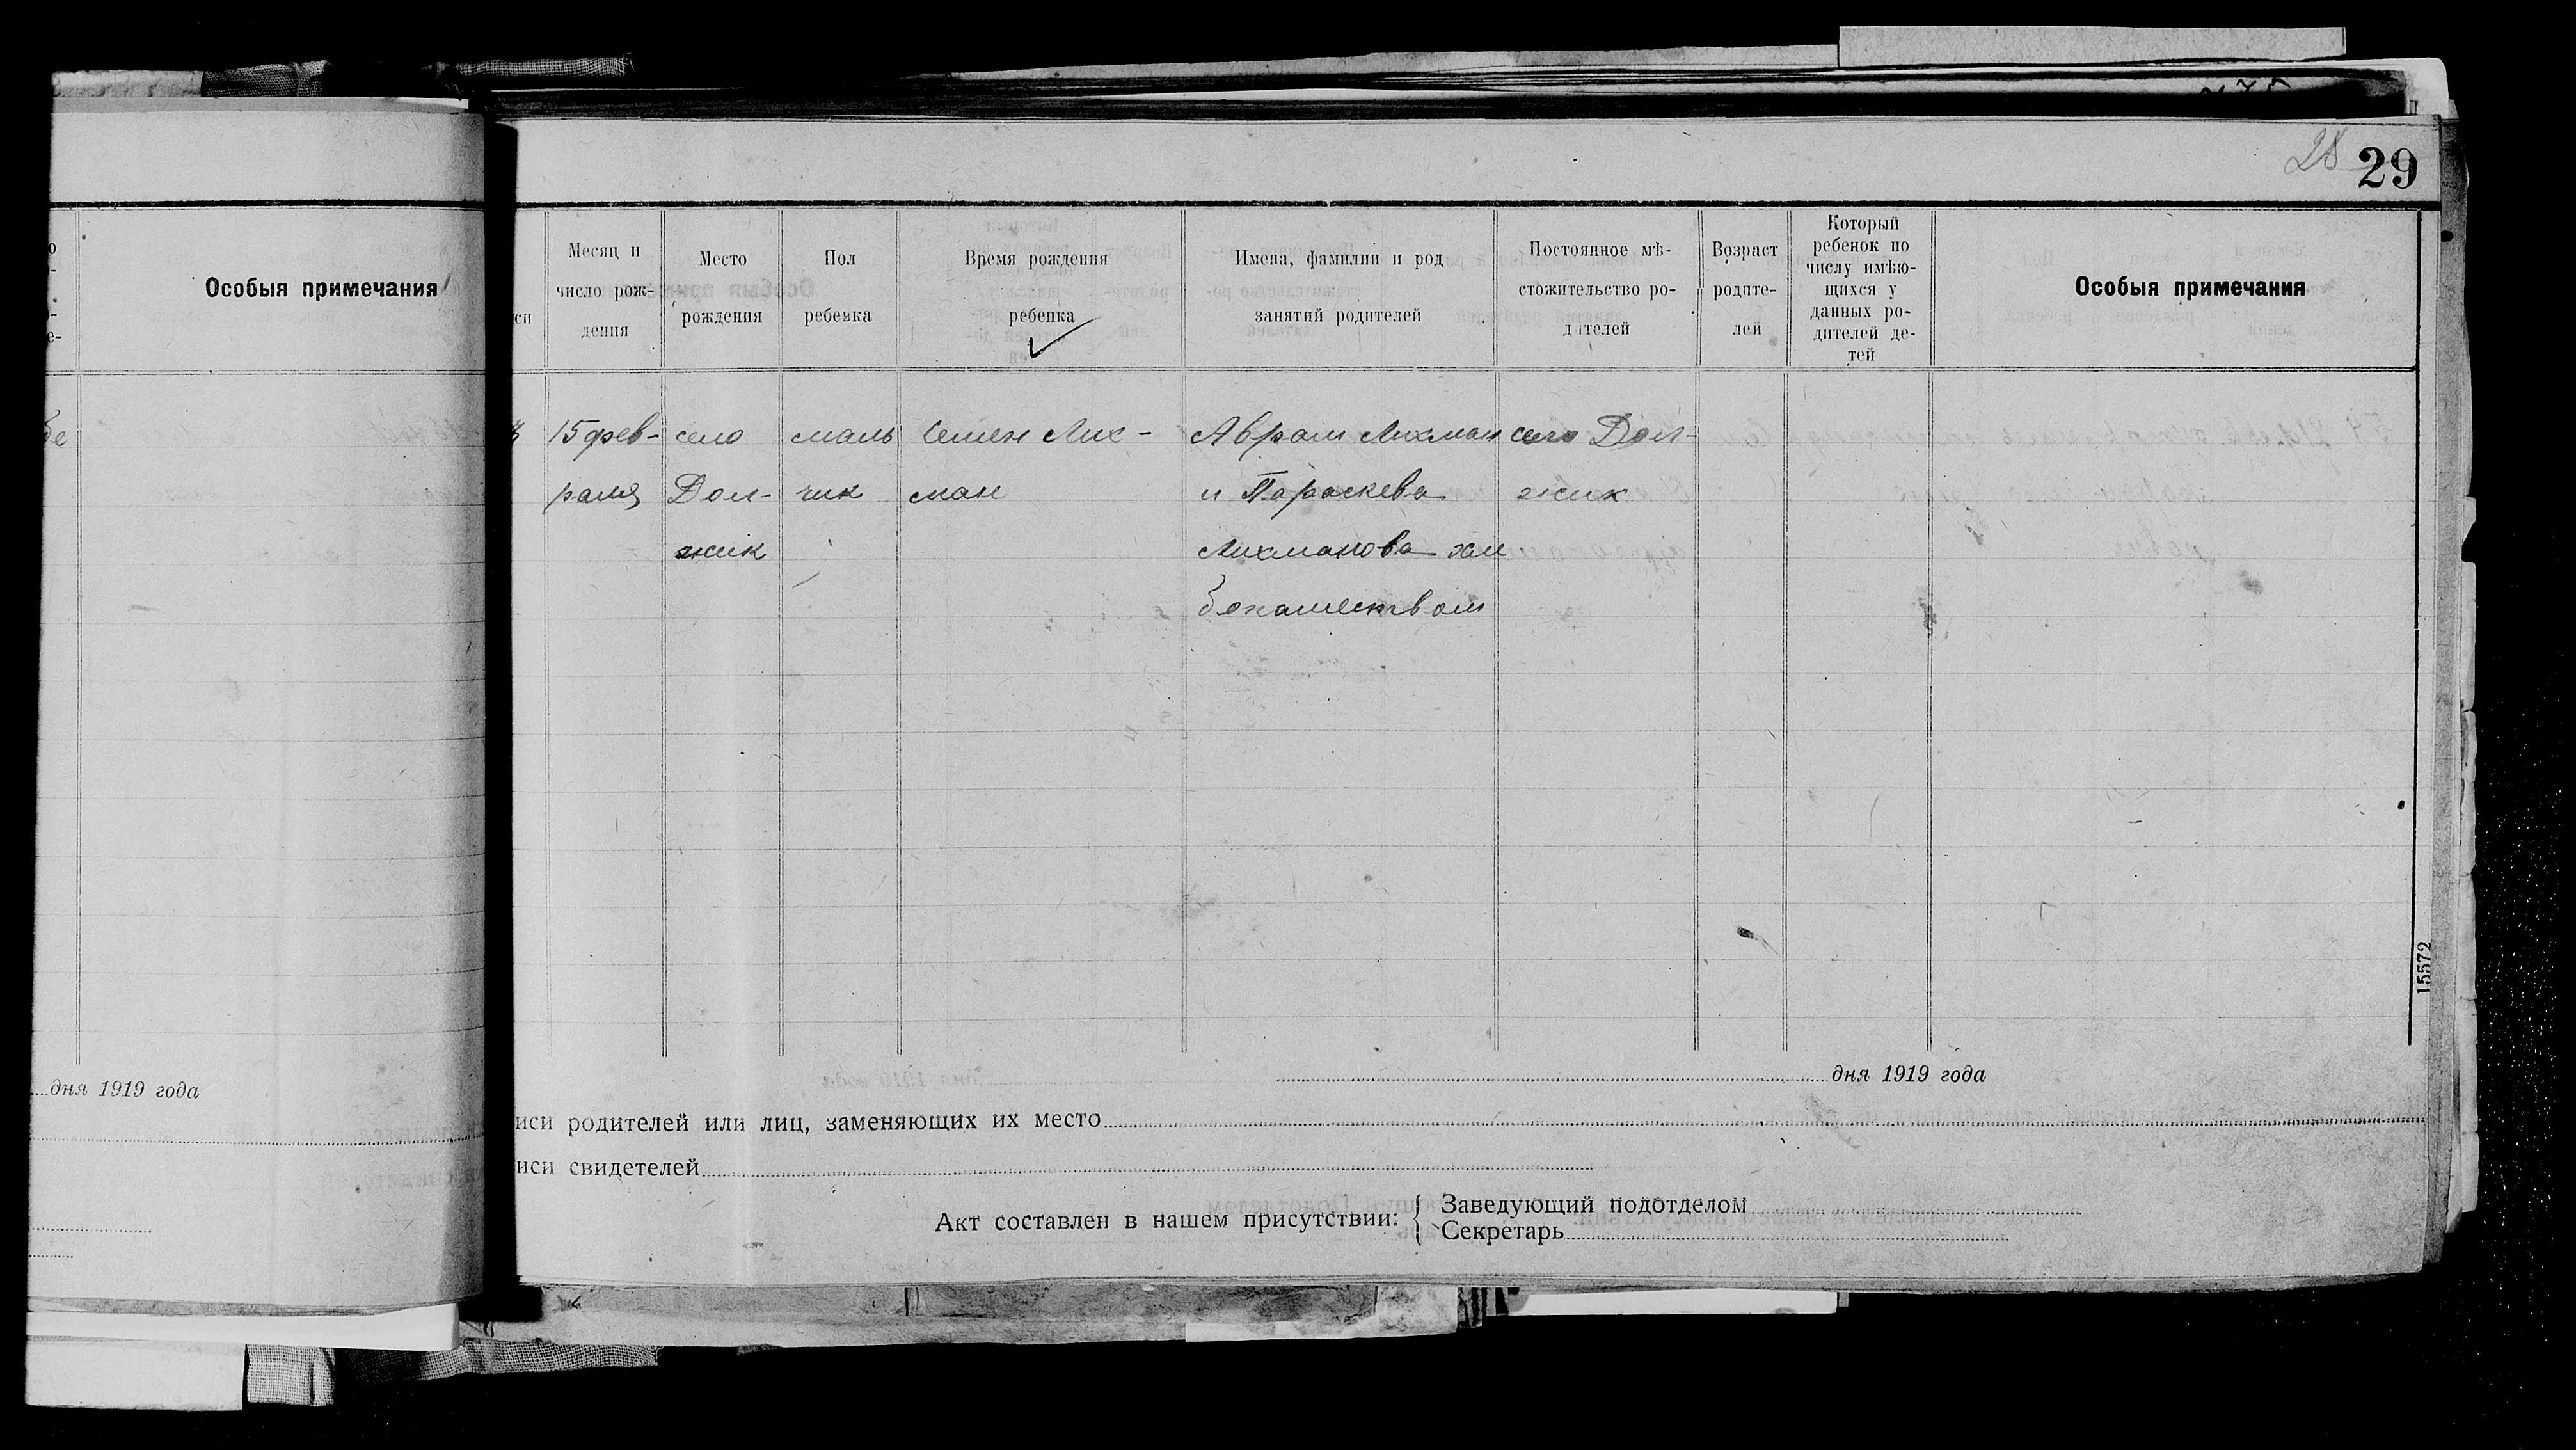 28 29
Особыя примечания
Месяц и
число рож-
дения
Место
рождения
Пол
ребенка
Время рождения
ребенка
Имена, фамилии и род
занятий родителей
Постоянное мѣ-
стожительство ро-
дителей
Возраст
родите-
лей
Который
ребенок по
числу имѣю-
щихся у
данных ро-
дителей де-
тей
Особыя примечания
15 фев-
раля
село
Дол-
жик
маль
чик
Семен Лих-
ман
Аврам Лихман
и Параскева
Лихманова хле
бопашеством
село Дол-
жик
15572
дня 1919 года
дня 1919 года
иси родителей или лиц, заменяющих их место
иси свидетелей
Акт составлен в нашем присутствии:
Заведующий подотделом
Секретарь